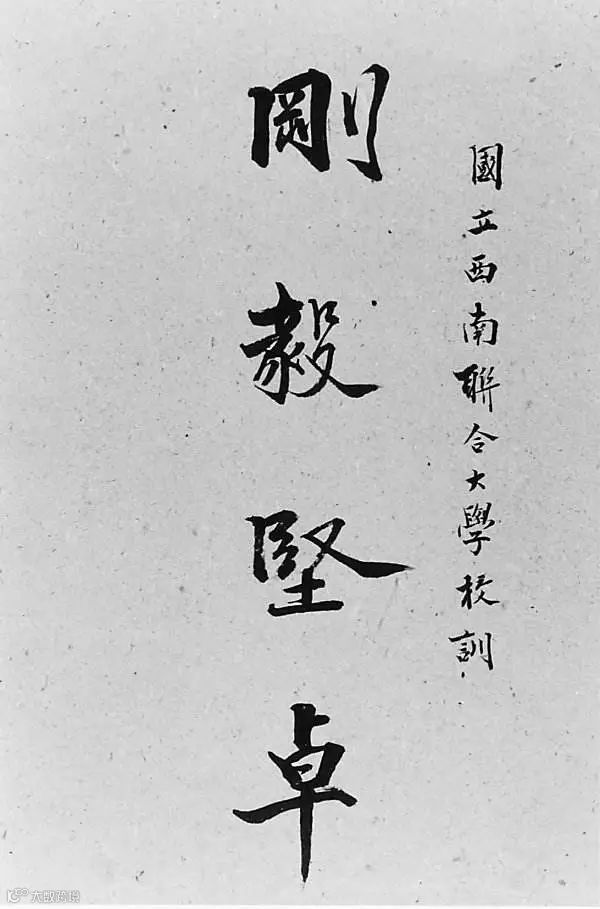 國立西南聯合大學校訓
剛毅堅卓
大数跨境